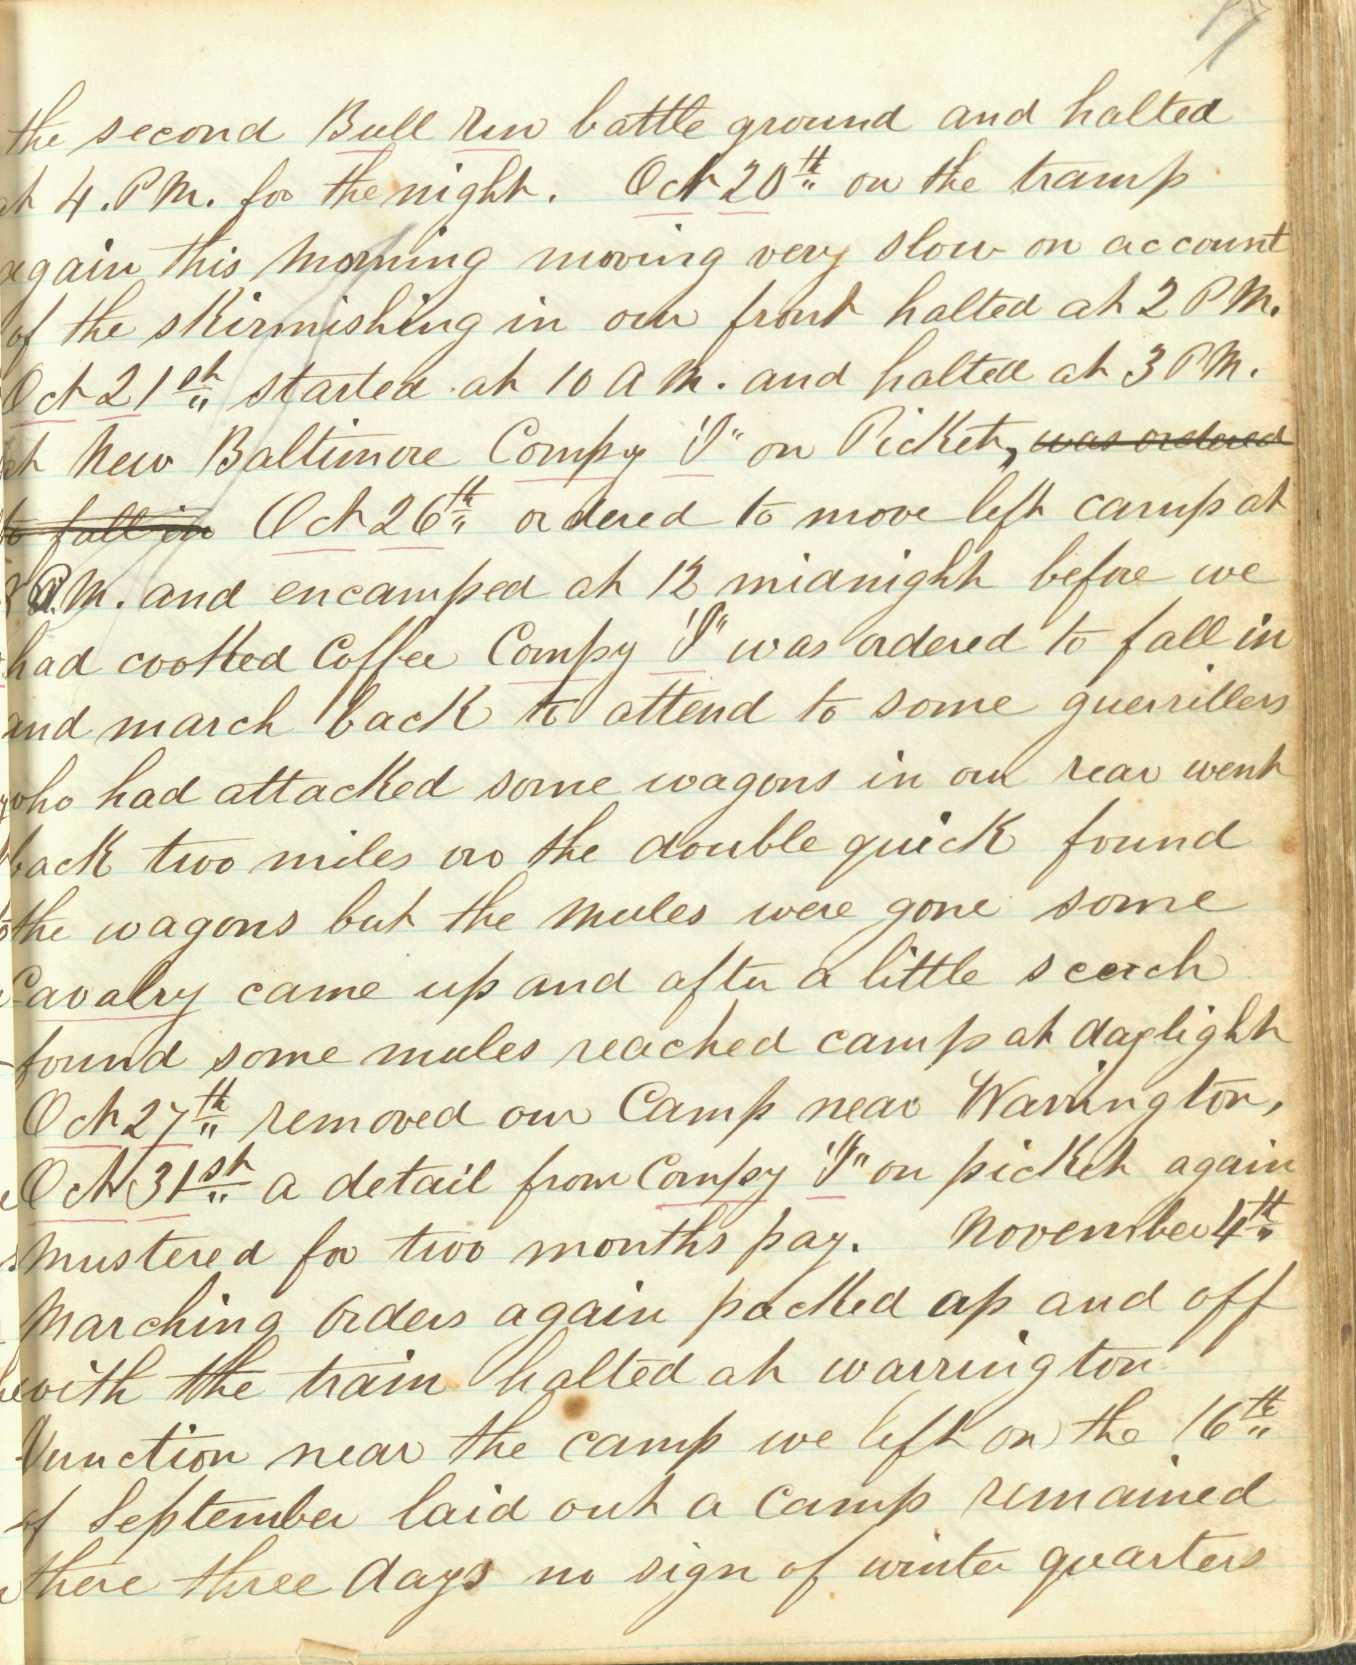 17
the second Bull run battle ground and halted
at 4. P M. for the night. Oct 20th on the tramp
again this morning moving very slow on account
of the skirmishing in our front halted at 2 P M.
Oct 21st started at 10 A M. and halted at 3 P M.
at New Baltimore Compy "I" on Picket, was ordered
to fall in Oct 26th ordered to move left camp at
P.M. and encamped at 12 midnight before we
had cooked Coffee Compy "I" was ordered to fall in
and march back to attend to some guerrillers
who had attacked some wagons in our rear went
back two miles on the double quick found
the wagons but the mules were gone some
Cavalry came up and after a little search
found some mules reached camp at daylight
Oct 27th removed our Camp near Warrington,
Oct 31st a detail from Compy "I" on picket again
mustered for two months pay. November 4th
Marching orders again packed up and off
with the train halted at warrington
Junction near the camp we left on the 16th
of September laid out a camp remained
there three days no sign of winter quarters